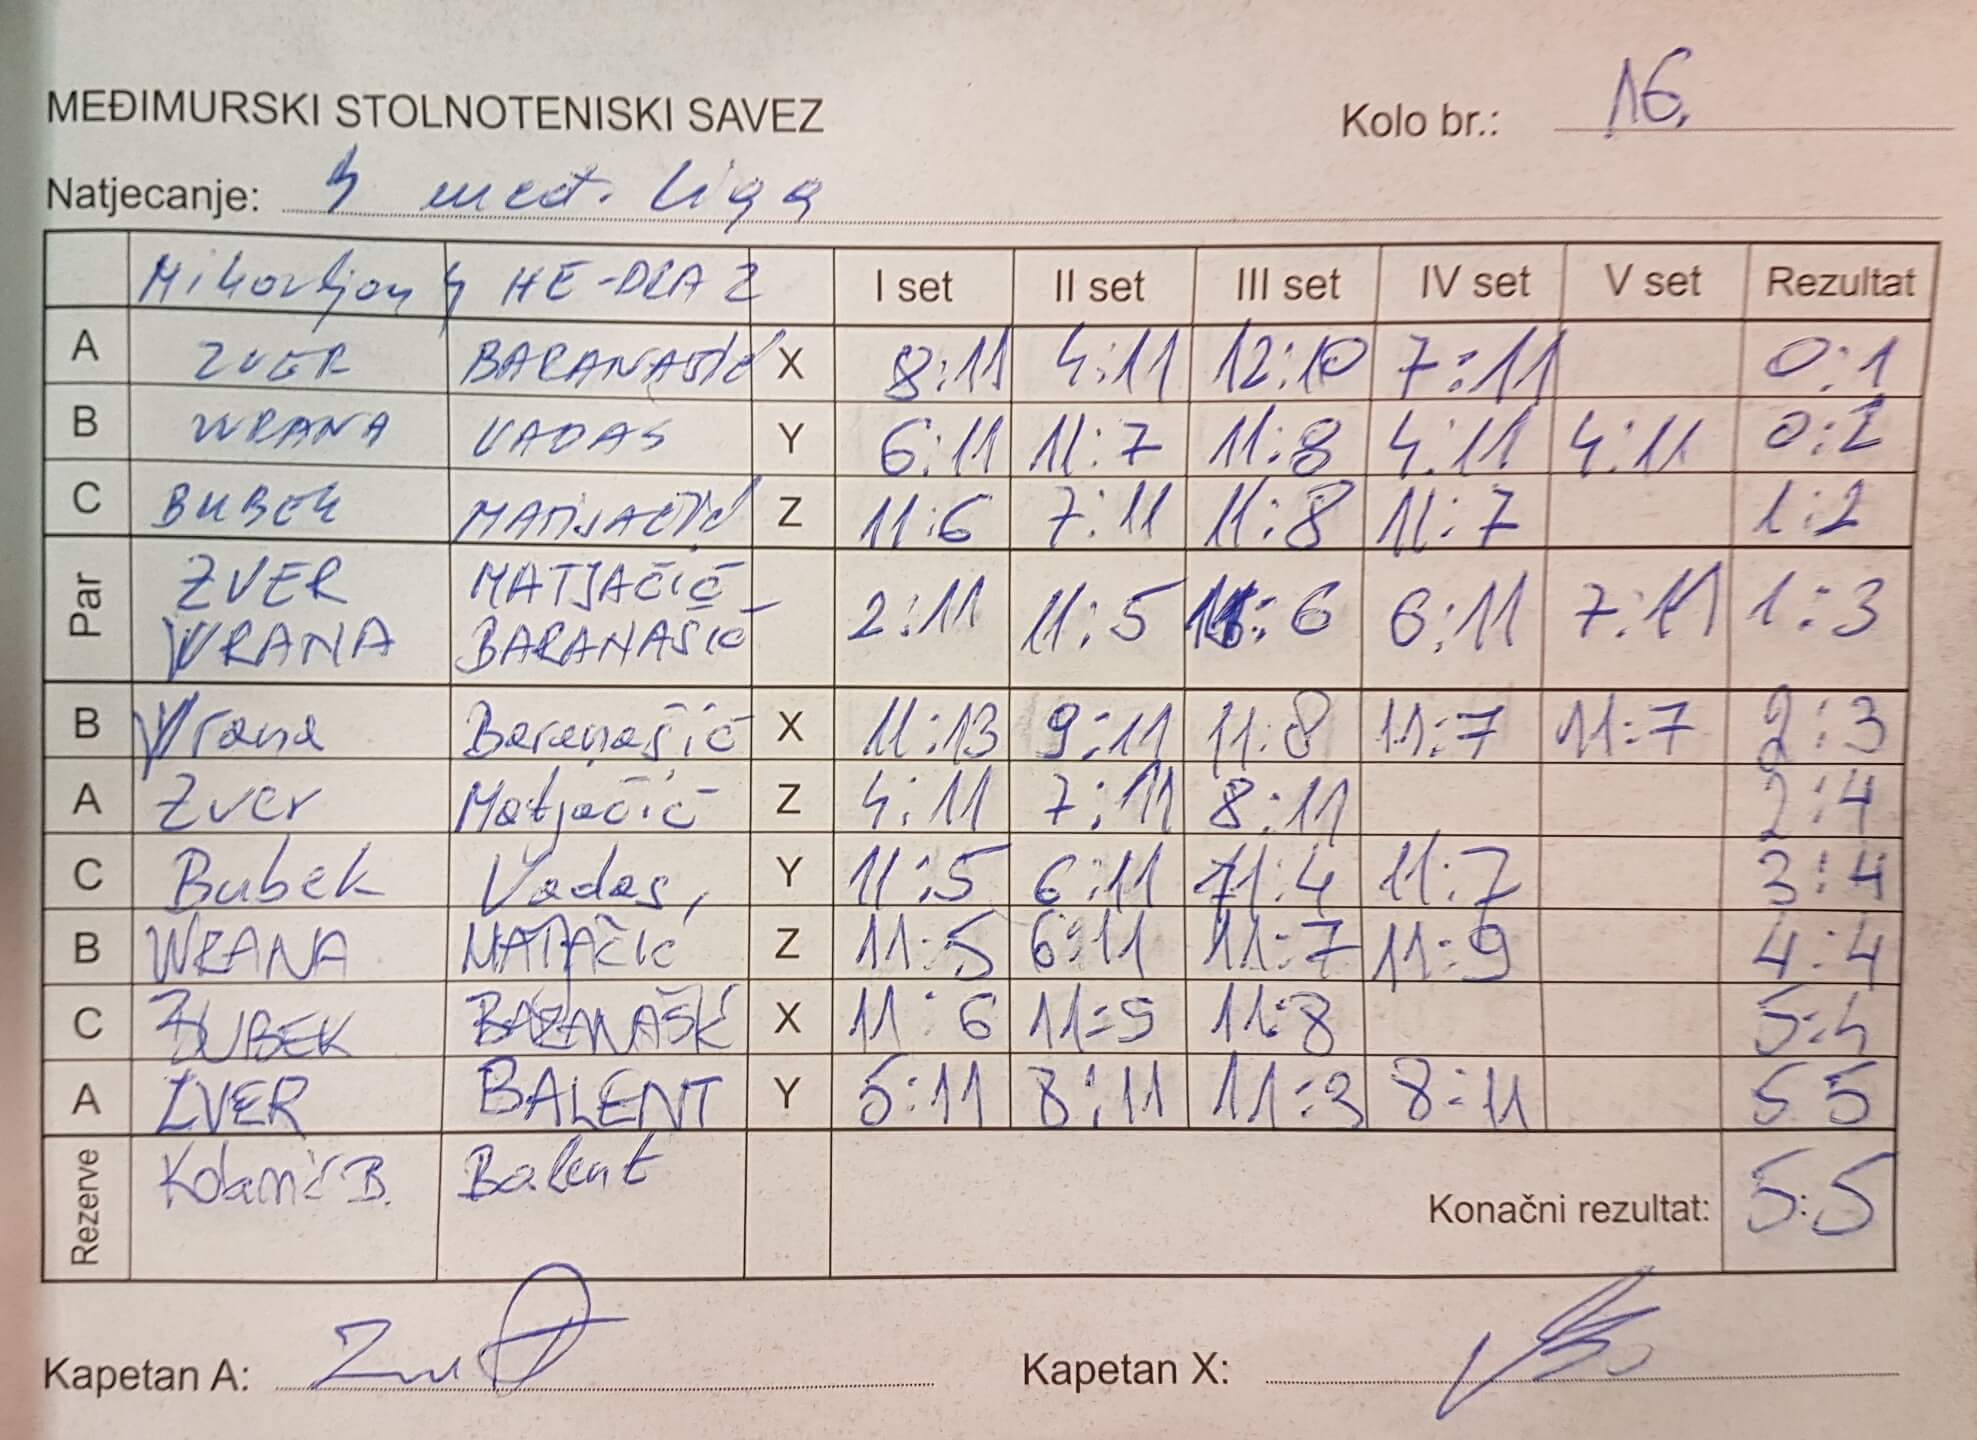 MEĐIMURSKI STOLNOTENISKI SAVEZ
Kolo br.: 16.
Natjecanje: 4 međ. liga
Mihovljan 4 HE-DRA 2 I set II set III set IV set V set Rezultat
A ZVER BARANAŠIĆ X 8:11 4:11 12:10 7:11 0:1
B WRANA VADAS Y 6:11 11:7 11:8 4:11 4:11 0:2
C BUBEK MATJAČIĆ Z 11:6 7:11 11:8 11:7 1:2
Par ZVER WRANA MATJAČIĆ - BARANAŠIĆ 2:11 11:5 11:6 6:11 7:11 1:3
B Wrana Baranašić X 11:13 9:11 11:8 11:7 11:7 2:3
A Zver Matjačić Z 4:11 7:11 8:11 2:4
C Bubek Vadas, Y 11:5 6:11 11:4 11:7 3:4
B WRANA MATJAČIĆ Z 11:5 6:11 11:7 11:9 4:4
C BUBEK BARANAŠIĆ X 11:6 11:9 11:8 5:4
A ZVER BALENT Y 5:11 8:11 11:3 8:11 5 5
Rezerve B. Balent Konačni rezultat: 5:5
Kapetan A: Kapetan X: